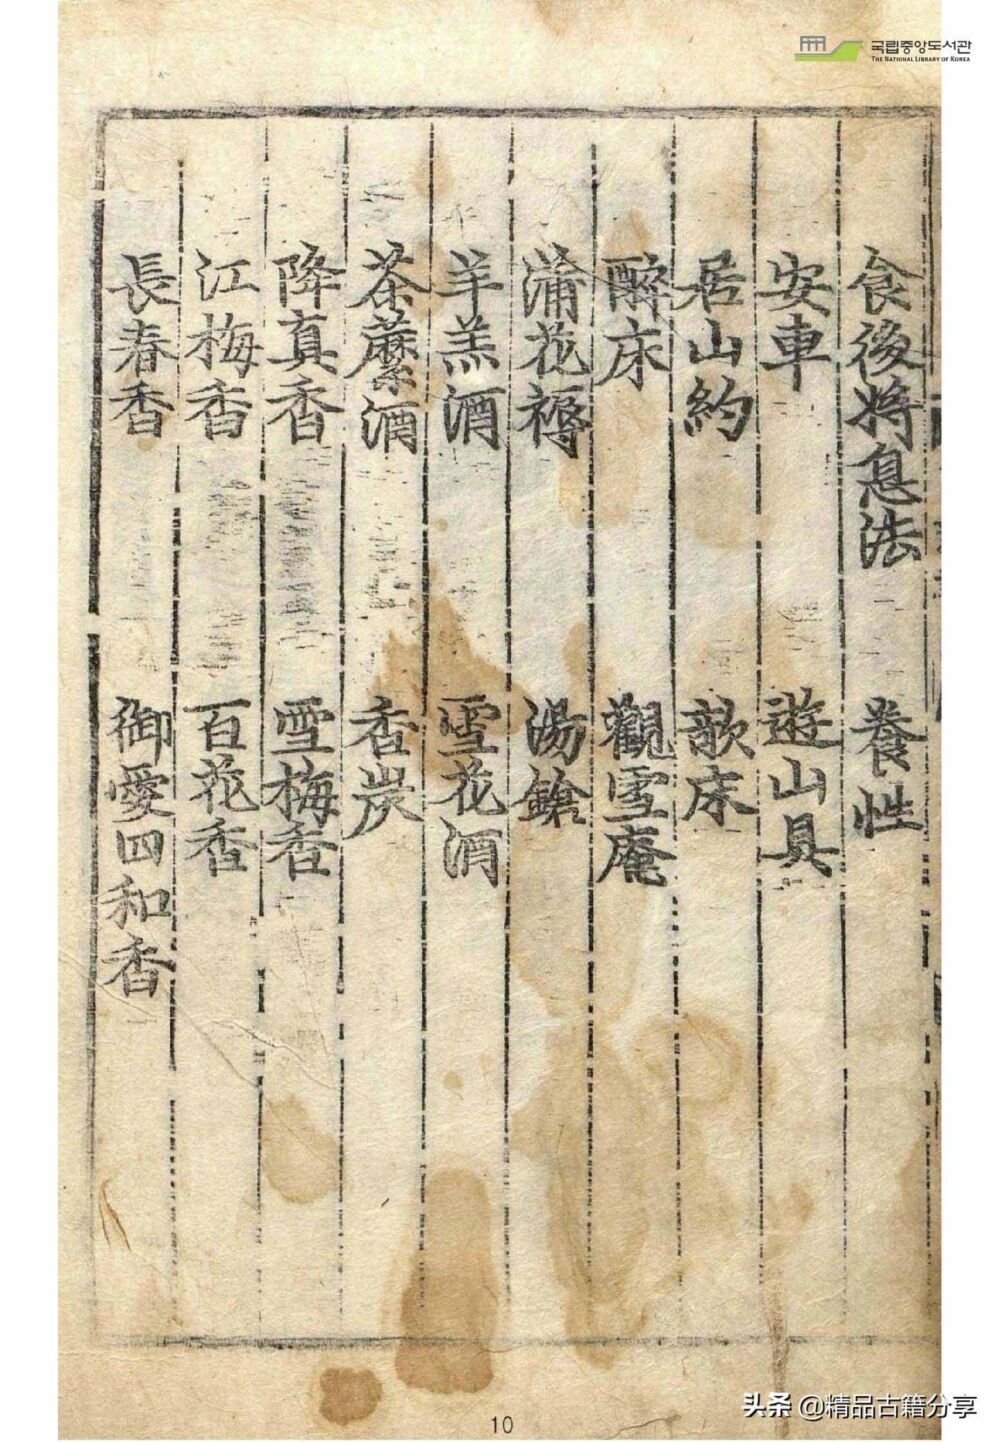 국립중앙도서관
THE NATIONAL LIBRARY OF KOREA
食後将息法 養性
安車 遊山具
居山約 欹床
醉床 觀雪庵
蒲花褥 湯鎗
羊羔酒 雪花酒
茶蘼酒 香炭
降真香 雪梅香
江梅香 百花香
長春香 御愛四和香
10
头条 @精品古籍分享